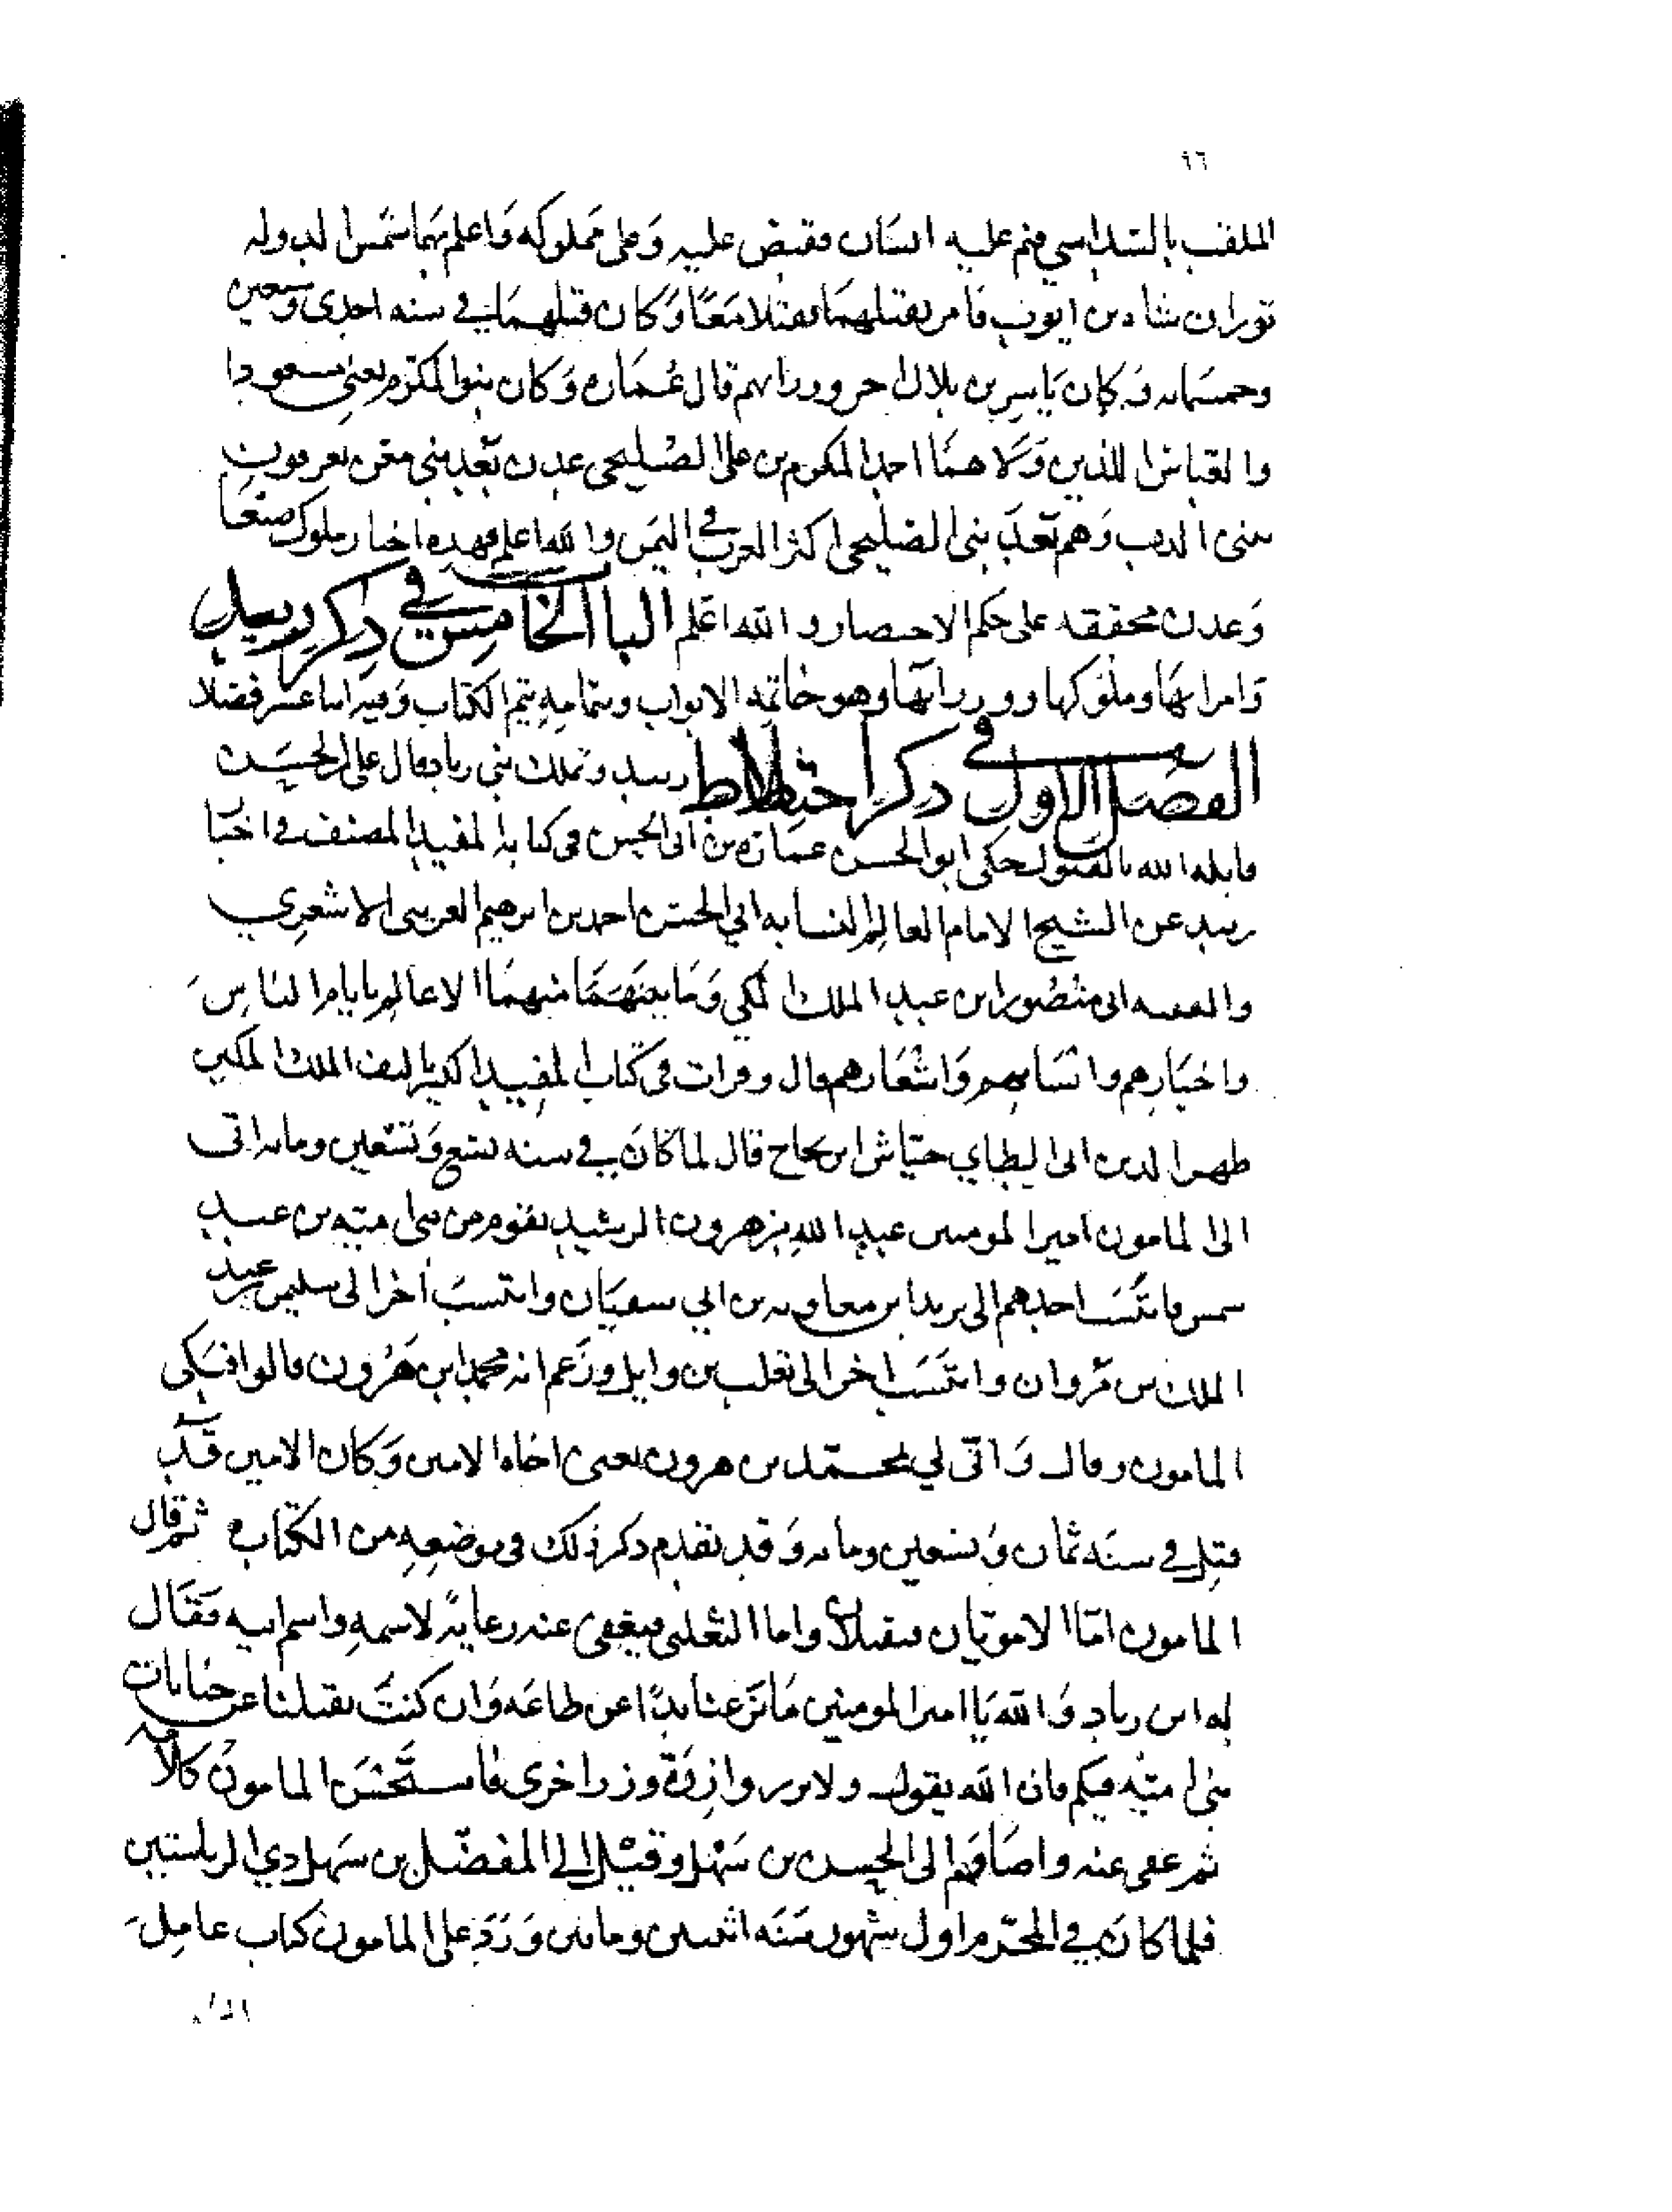 ٩٦
الملقب بالسداسي فنم عليه انسان فقبض عليه وعلى مملوكه واعلم بهما شمس الدوله
توران شاه بن ايوب فامر بقتلهما فقتلا معًا وكان قتلهما في سنه احدى وسبعين
وخمسمايه وكان ياسر بن بلال اخر وزرايهم قال عماره وكان بنو المكرم يعنى مسعودا
والعباس اللذين ولاهما احمد المكرم بن على الصليحى عدن بعد بني معن يعرفون
ببنى الذيب وهم بعد بني الصليحى اكثر العرب في اليمن والله اعلم فهذه اخبار ملوك صنعا
وعدن محققه على حكم الاختصار والله اعلم الباب الخامس في ذكر زبيد
وامرايها وملوكها ووزرايها وهو خاتمه الابواب وبتمامه يتم الكتاب وفيه اثنا عشر فصلا
الفصل الاول في ذكر اختطاط زبيد وتملك بني زياد قال على بن الحسن
قابله الله بالقبول حكى ابو الحسن عماره بن ابى الحسن فى كتابه المفيد المصنف في اخبار
زبيد عن الشيخ الامام العالم النسابه ابي الحسن احمد بن ابرهيم الاشعري
والفقيه ابى منصور ابن عبد الملك المكي وما بينهما منهما الا عالم بايام الناس
واخبارهم وانسابهم واشعارهم قال وقرات فى كتاب المفيد تاليف الملك المكين
ظهير الدين ابى الطامي جياش ابن نجاح قال لما كان في سنه تسع وتسعين ومايه اتى
الى المامون امير المومنين عبد الله بن هرون الرشيد بقوم من بني اميه بن عبد
شمس فانتسب احدهم الى يزيد ابن معاويه بن ابي سفيان وانتسب اخر الى سليمن بن عبد
الملك بن مروان وانتسب اخر الى تغلب بن وايل وزعم انه محمد ابن هرون قالوا فبكى
المامون وقال وانى لي بمحمد بن هرون يعنى اخاه الامين وكان الامين قد
قتل في سنه ثمان وتسعين ومايه وقد تقدم ذكر ذلك فى موضعه من الكتاب ثم قال
المامون اما الامويان فيقتلان واما التغلبى فيعفى عنه رعايةً لاسمه واسم ابيه فقال
له ابن زياد والله يا امير المومنين ما نزعنا يدًا عن طاعه وان كنت تقتلنا عن جنايات
بنى اميه فيكم فان الله يقول ولا تزر وازرة وزر اخرى فاستحسن المامون كلامه
ثم عفى عنه واضافهم الى الحسن بن سهل وقيل الى المفضل بن سهل ذي الرياستين
فلما كان في المحرم اول شهور سنه اثنتين ومايتين ورد على المامون كتاب عامل